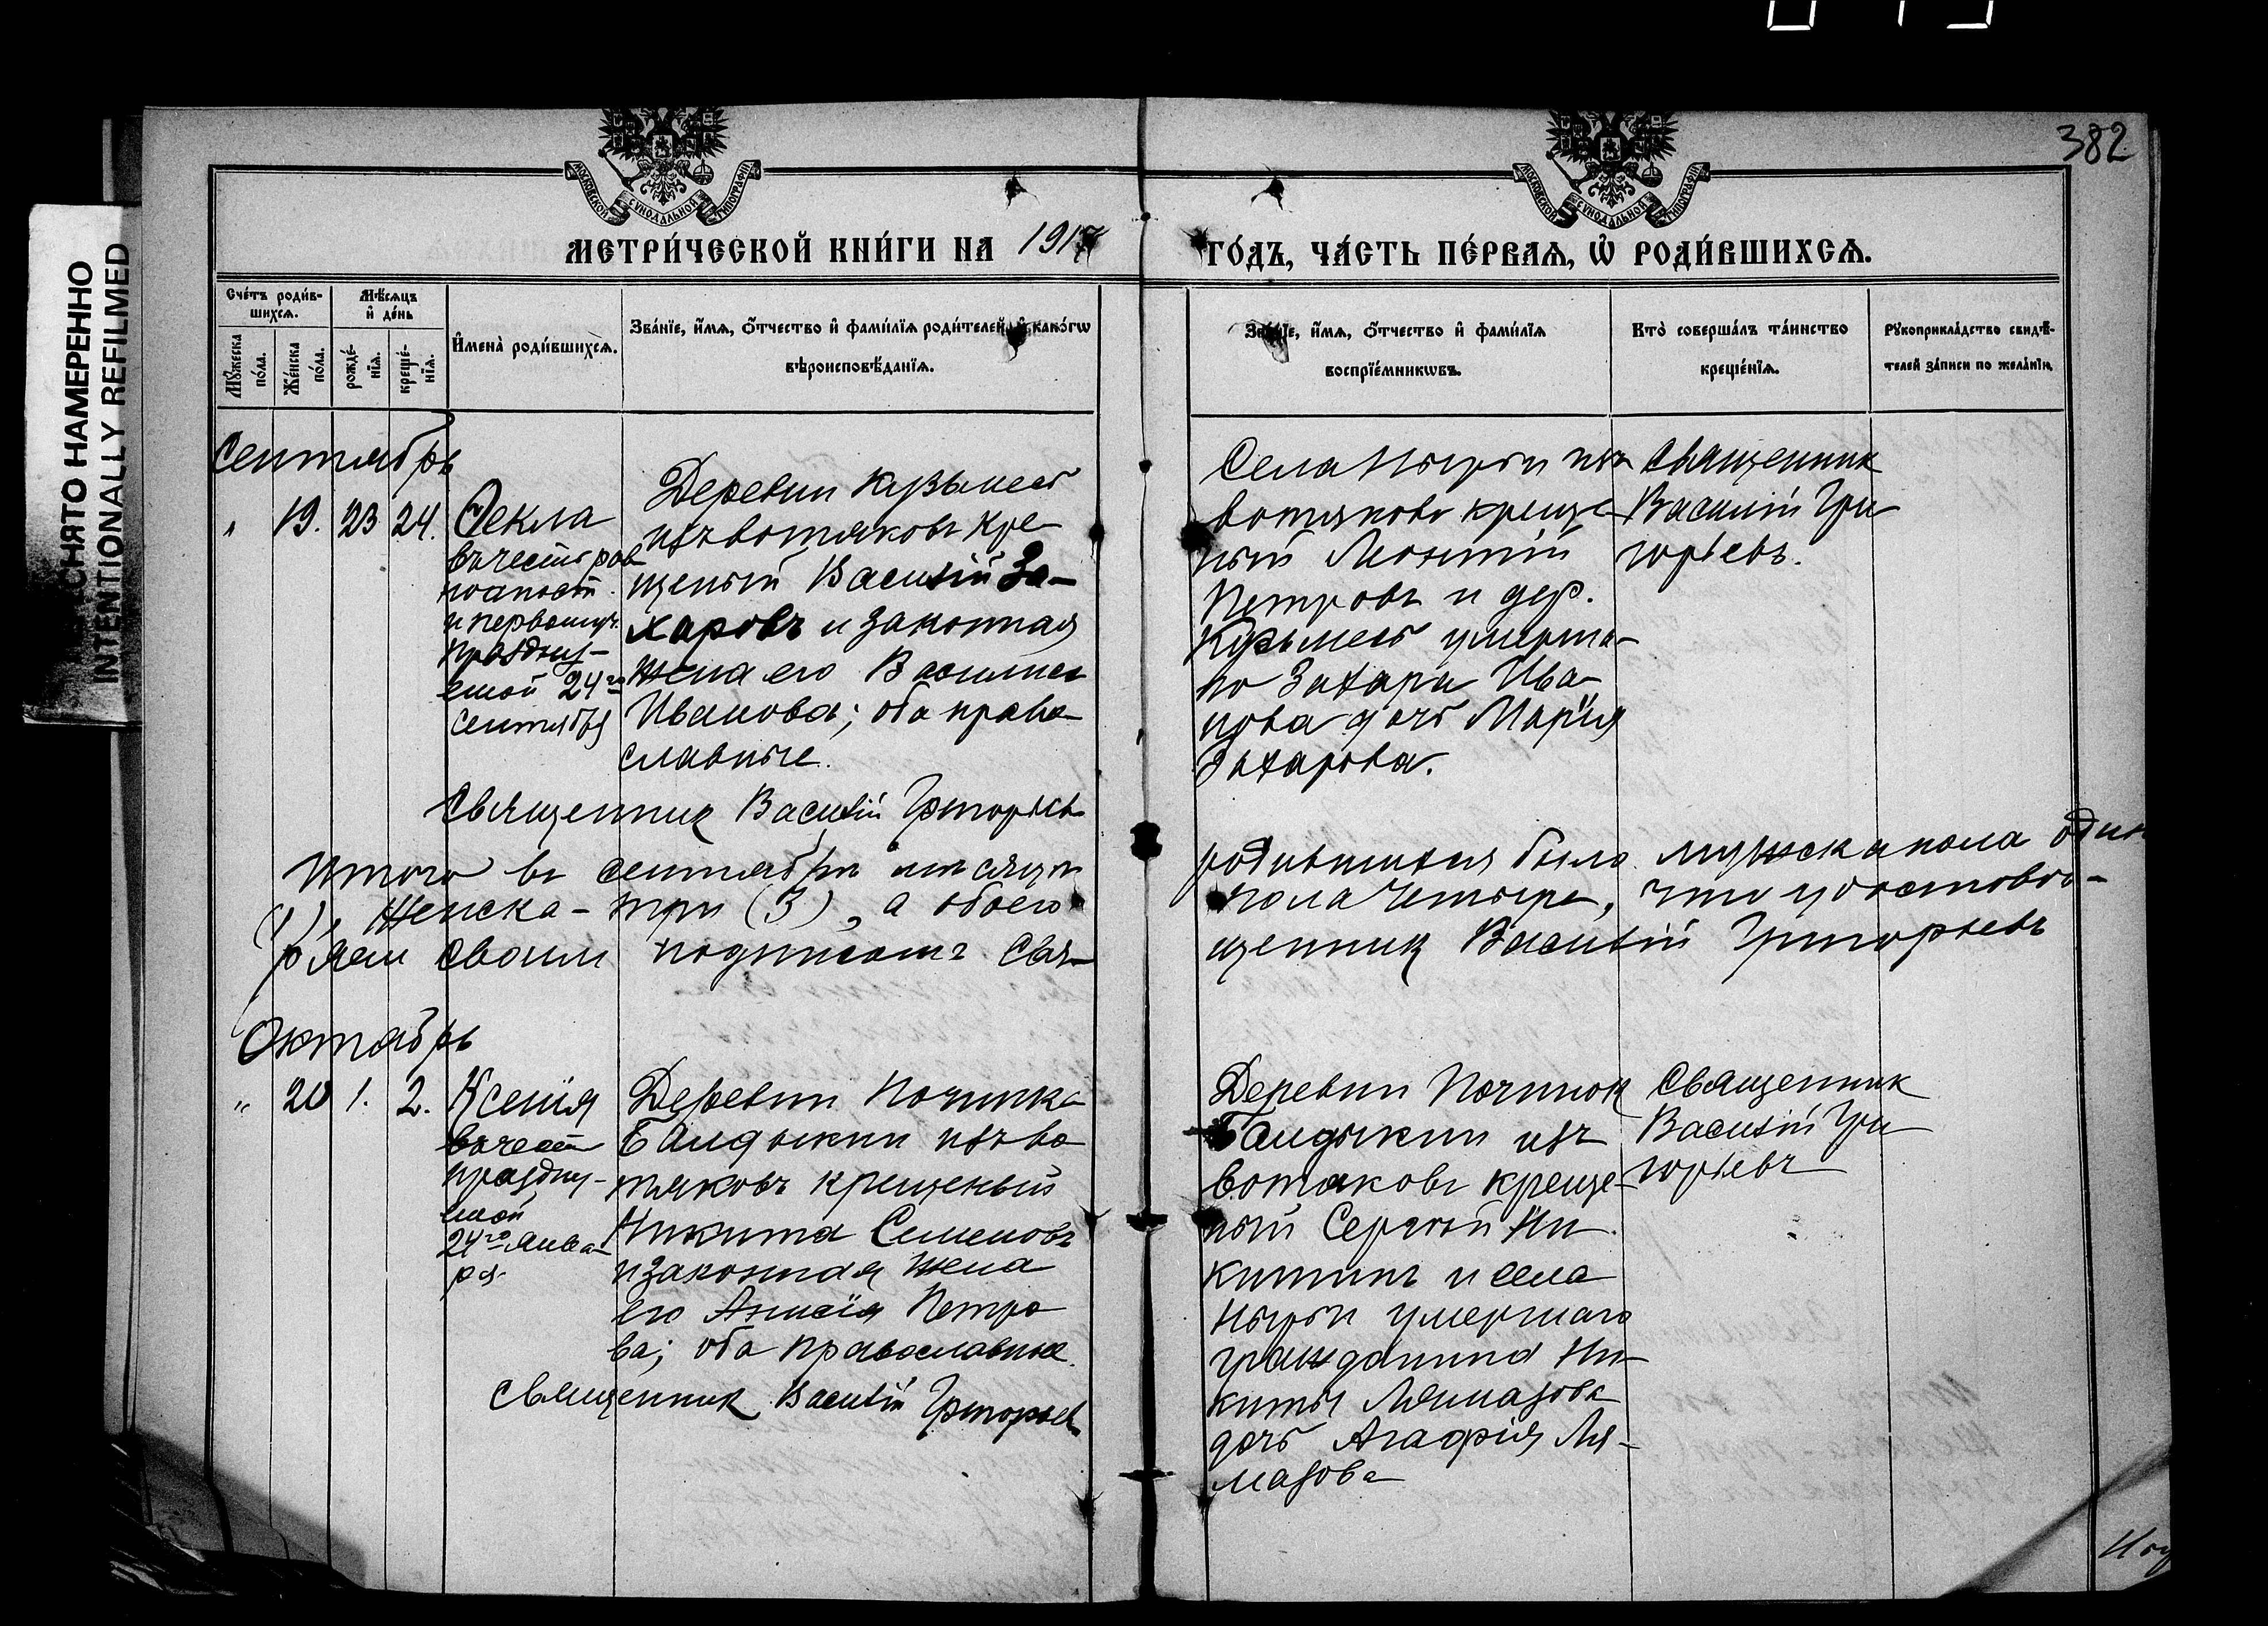 382
СНЯТО НАМЕРЕННО
INTENTIONALLY REFILMED
МОСКОВСКОЙ СѴНОДАЛЬНОЙ ТИПОГРАФІИ
МОСКОВСКОЙ СѴНОДАЛЬНОЙ ТИПОГРАФІИ
МЕТРИ́ЧЕСКОЙ КНИ́ГИ НА 1917
ГО́ДЪ, ЧА́СТЬ ПЕ́РВАѦ, Ѡ҆ РОДИ́ВШИХСѦ.
Сче́тъ роди́в-
шихсѧ.
Мꙋ́жеска по́ла.
Же́нска по́ла.
Мѣ́сѧцъ и҆ де́нь
рожде́-
нїѧ.
креще́-
нїѧ.
И҆мена̀ роди́вшихсѧ.
Зва́нїе, и҆́мѧ, ѻ҆́тчество и҆ фами́лїѧ роди́телей, и҆ како́гѡ
вѣроисповѣ́данїѧ.
Зва́нїе, и҆́мѧ, ѻ҆́тчество и҆ фами́лїѧ
воспрїе́мникѡвъ.
Кто̀ соверша́лъ та́инство
креще́нїѧ.
Рꙋкоприкла́дство свидѣ́-
телей за́писи по жела́нїю.
Сентябрь
" 19. 23 24.
Ѳекла
въ честь рав
ноапост.
и первомуч.
праздну-
емой 24го
сентября
Деревни Кузьмесь
изъ вотяковъ кре-
щеный Василій За-
харовъ и законная
жена его Василиса
Иванова; оба право-
славные.
Священник Василій Григорьевъ
Села Нырьи изъ
вотяковъ креще-
ный Леонтій
Петровъ и дер.
Кузьмесь умерша-
го Захара Ива-
нова дочь Марія
Захарова.
Священник
Василій Гри
горьевъ.
Итого въ сентябрѣ мѣсяцѣ родившихся было мужска пола один
(1), женска - три (3), а обоего пола четыре, что удостовѣ-
ряем своим подписом: Свя-щенник Василій Григорьевъ
Октябрь
" 20 1. 2.
Ксенія
въ честь
праздну-
емой
24го Янва-
ря.
Деревни Починка
Балдыкии изъ во
тяковъ крещеный
Никита Семеновъ
и законная жена
его Анисія Петро
ва; оба православные.
Священник Василій Григорьевъ
Деревни Починок
Балдыкии изъ
вотяковъ креще-
ный Сергѣй Ни
китинъ и села
Нырьи умершаго
гражданина Ни-
киты Лямазова
дочь Агафія Ля-
мазова
Священник
Василій Гри
горьевъ